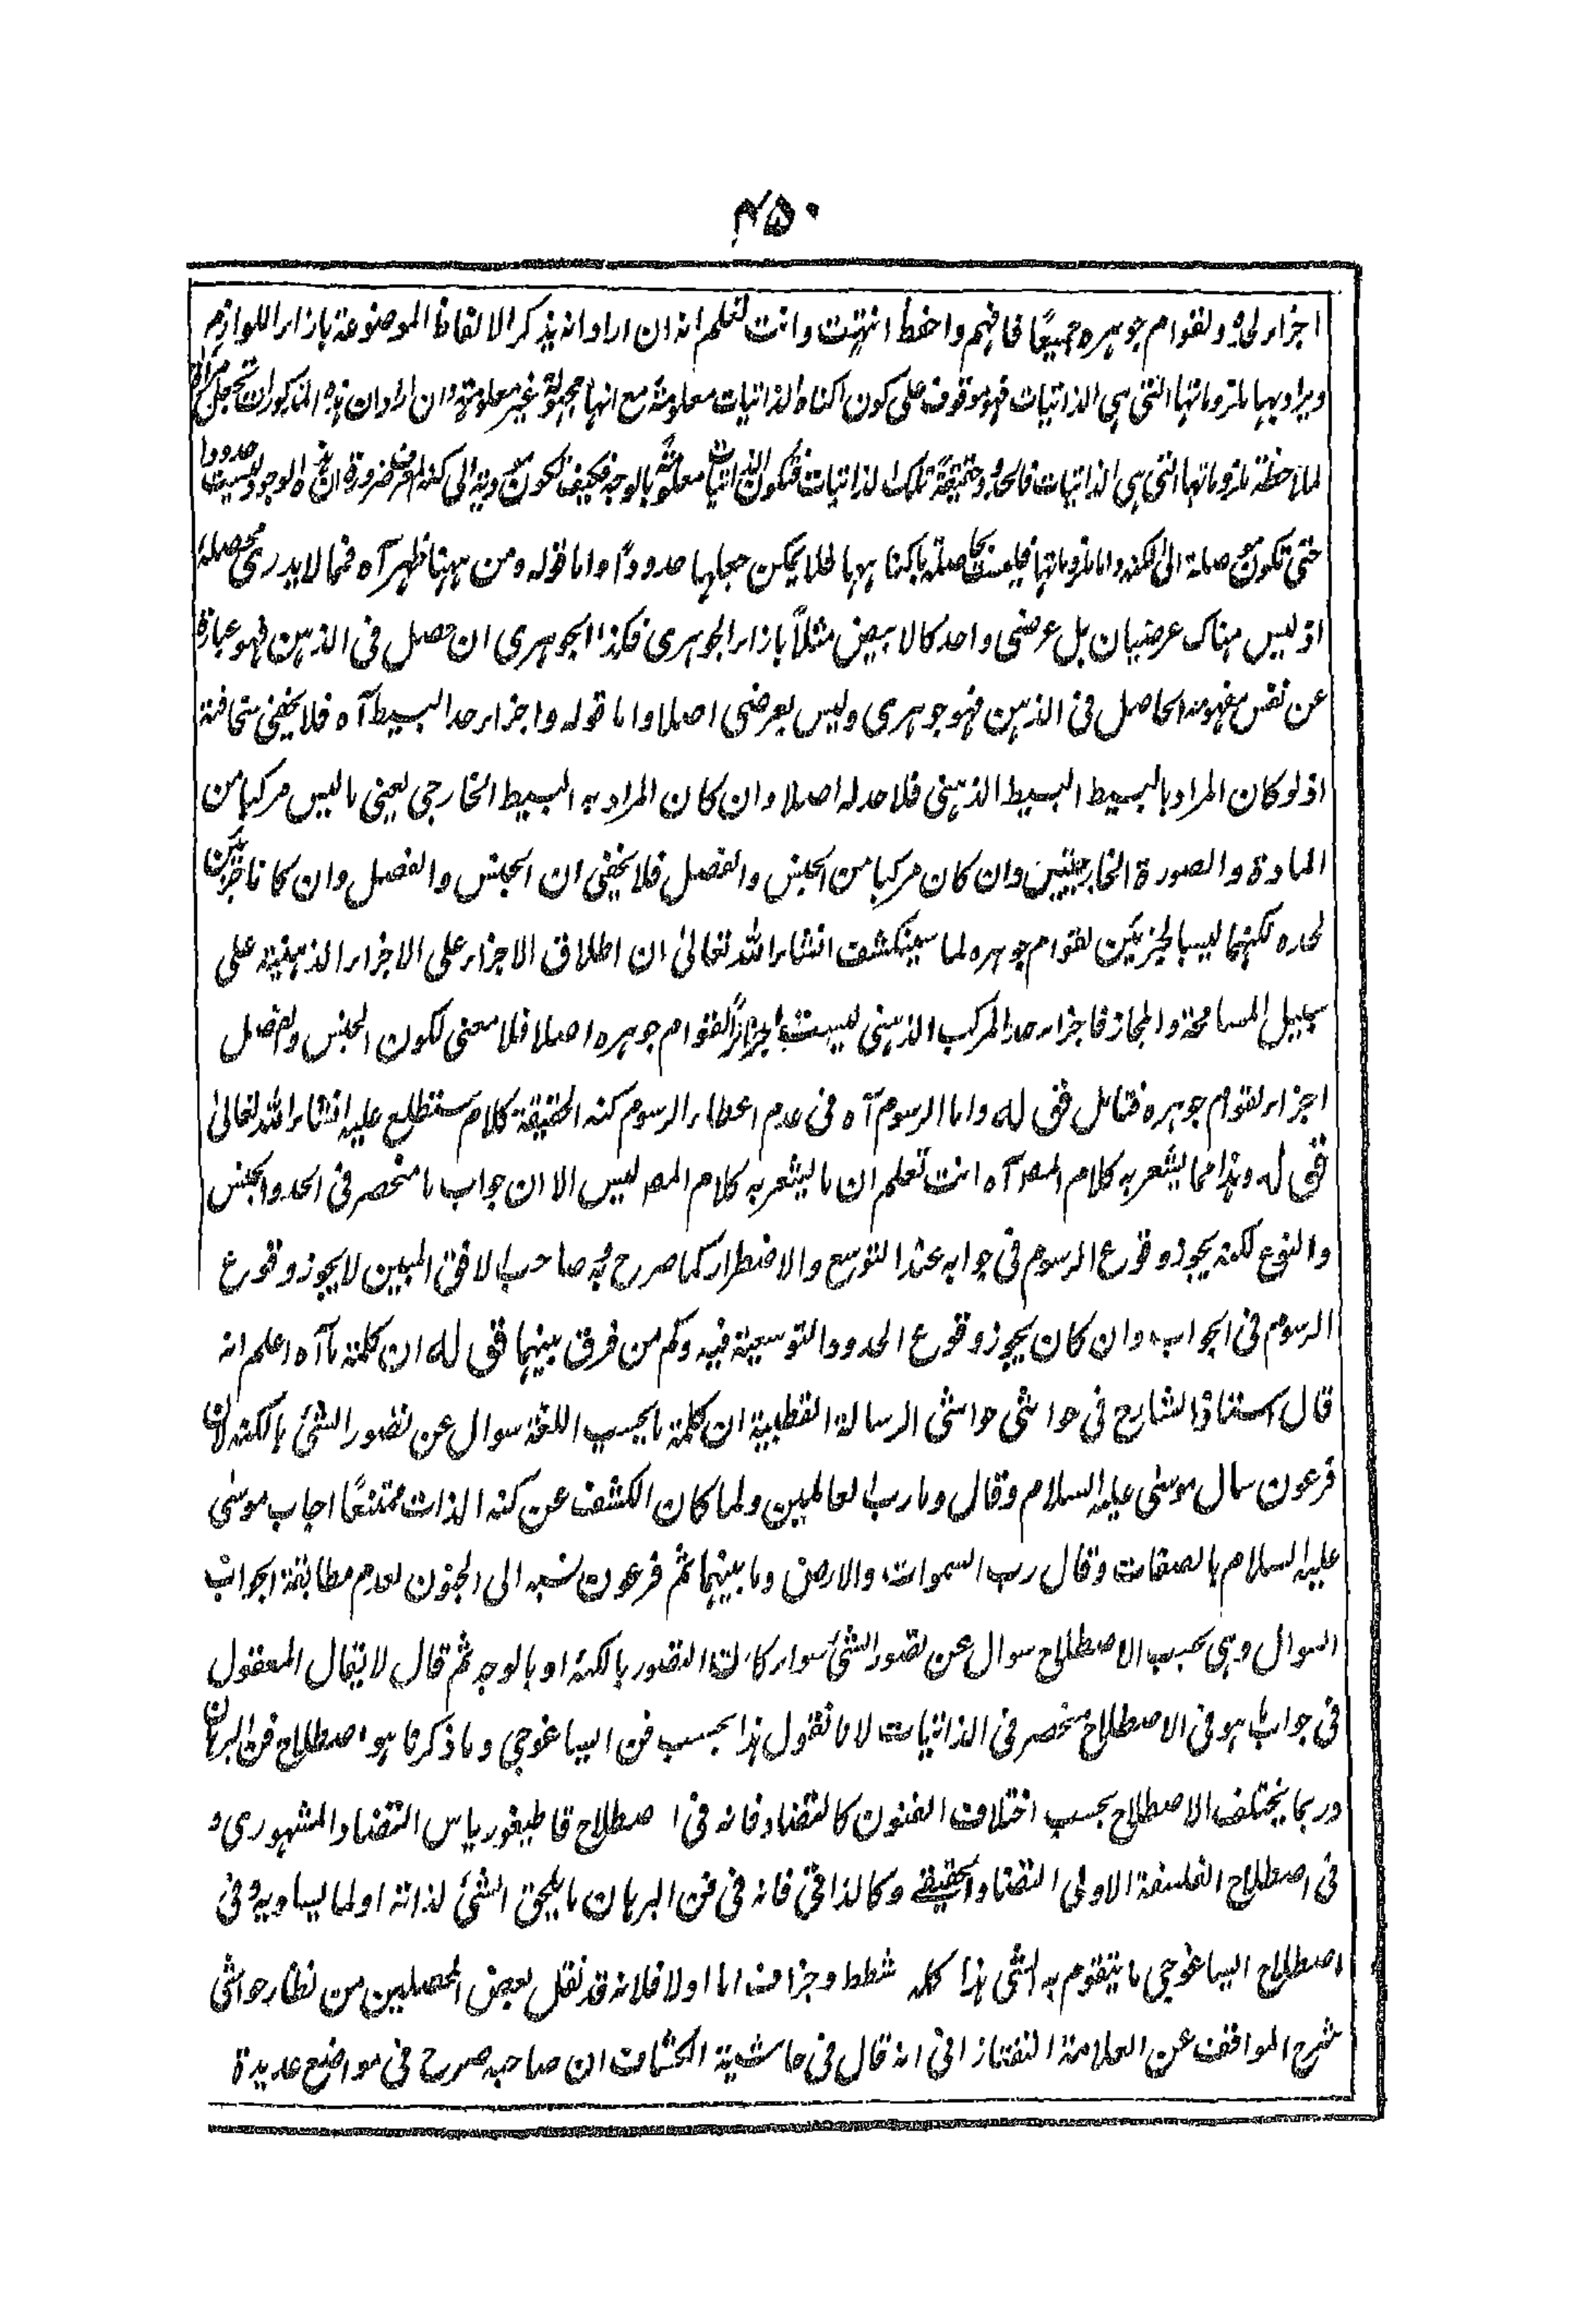 ۴۵۰
اجزاء لحده ولقوام جوهره جميعًا فافهم واحفظ انتهت وانت تعلم انه ان اراد انه يذكر الالفاظ الموضوعة بازاء اللوازم
ويراد بها ملزوماتها التي هي الذاتيات فهو موقوف على كون اكناه الذاتيات معلومة مع انها مجهولة غير معلومة وان اراد ان هذه المذكورات تجعل مرآة
لملاحظة ملزوماتها التي هي الذاتيات فالحدود حقيقةً تلك الذاتيات فتكون الذاتيات معلومةً بالوجه فكيف تكون مؤدية الى كنه المعرف ضرورة ان هذه الوجوه ليست حدودا
حتى تكون موصلة الى الكنه واما ملزوماتها فليست حاصلة باكناهها فلا يمكن جعلها حدودًا واما قوله ومن ههنا ظهر آه فمما لا يدرى محصله
اذ ليس هناك عرضيان بل عرضى واحد كالابيض مثلاً بازاء الجوهرى فكذا الجوهرى ان حصل فى الذهن فهو عبارة
عن نفس مفهومه الحاصل فى الذهن فهو جوهرى وليس بعرضى اصلا واما قوله واجزاء حد البسيط آه فلا يخفى سخافته
اذ لو كان المراد بالبسيط البسيط الذهنى فلا حد له اصلا وان كان المراد به البسيط الخارجي يعنى ما ليس مركبا من
المادة والصورة الخارجيتين وان كان مركبا من الجنس والفصل فلا يخفى ان الجنس والفصل وان كانا جزئين
لحده لكنهما ليسا بجزئين لقوام جوهره لما سينكشف انشاء الله تعالى ان اطلاق الاجزاء على الاجزاء الذهنية على
سبيل المسامحة والمجاز فاجزاء حد المركب الذهنى ليست اجزاءً لقوام جوهره اصلا فلا معنى لكون الجنس والفصل
اجزاء لقوام جوهره فتامل قوله واما الرسوم آه فى عدم اعطاء الرسوم كنه الحقيقة كلام ستطلع عليه انشاء الله تعالى
قوله وهذا مما يشعر به كلام المصـ آه انت تعلم ان ما يشعر به كلام المصـ ليس الا ان جواب ما منحصر فى الحد والجنس
والنوع لكنه يجوز وقوع الرسوم فى جوابه عند التوسع والاضطرار كما صرح به صاحب الافق المبين لا يجوز وقوع
الرسوم فى الجواب وان كان يجوز وقوع الحدود التوسعية فيه وكم من فرق بينهما قوله ان كلمة ما آه اعلم انه
قال استاذ الشارح فى حواشى حواشى الرسالة القطبية ان كلمة ما بحسب اللغة سوال عن تصور الشئ بالكنه لان
فرعون سال موسى عليه السلام وقال وما رب العالمين ولما كان الكشف عن كنه الذات ممتنعًا اجاب موسى
عليه السلام بالصفات وقال رب السموات والارض وما بينهما ثم فرعون نسبه الى الجنون لعدم مطابقة الجواب
السوال وهى بحسب الاصطلاح سوال عن تصور الشئ سواء كان التصور بالكنه او بالوجه ثم قال لا يقال المعقول
فى جواب ما هو فى الاصطلاح منحصر فى الذاتيات لانا نقول هذا بحسب فن ايساغوجي وما ذكرنا هو اصطلاح فن البرهان
وربما يختلف الاصطلاح بحسب اختلاف الفنون كالتضاد فانه فى اصطلاح قاطيغورياس التضاد المشهورى و
فى اصطلاح الفلسفة الاولى التضاد الحقيقى وكالذاتى فانه فى فن البرهان ما يلحق الشئ لذاته او لما يساويه وفى
اصطلاح ايساغوجي ما يتقوم به الشئ هذا كله شطط وجزاف اما اولا فلانه قد نقل بعض المحصلين من نظار حواشى
شرح المواقف عن العلامة التفتازانى انه قال فى حاشية الكشاف ان صاحبه صرح فى مواضع عديدة